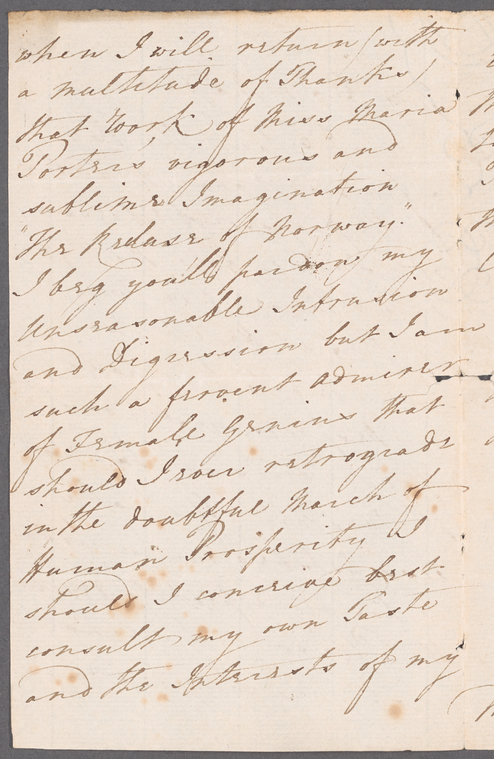 when I will return (with
a multitude of Thanks)
that work of Miss Maria
Porter's, vigorous and
sublime Imagination
"The Recluse of Norway."
I beg you'll pardon my
Unseasonable Intrusion
and Digression but I am
such a fervent admirer
of Female Genius that
should I ever retrograde
in the doubtful March of
Human Prosperity I
should I conceive best
consult my own Taste
and the Interests of my